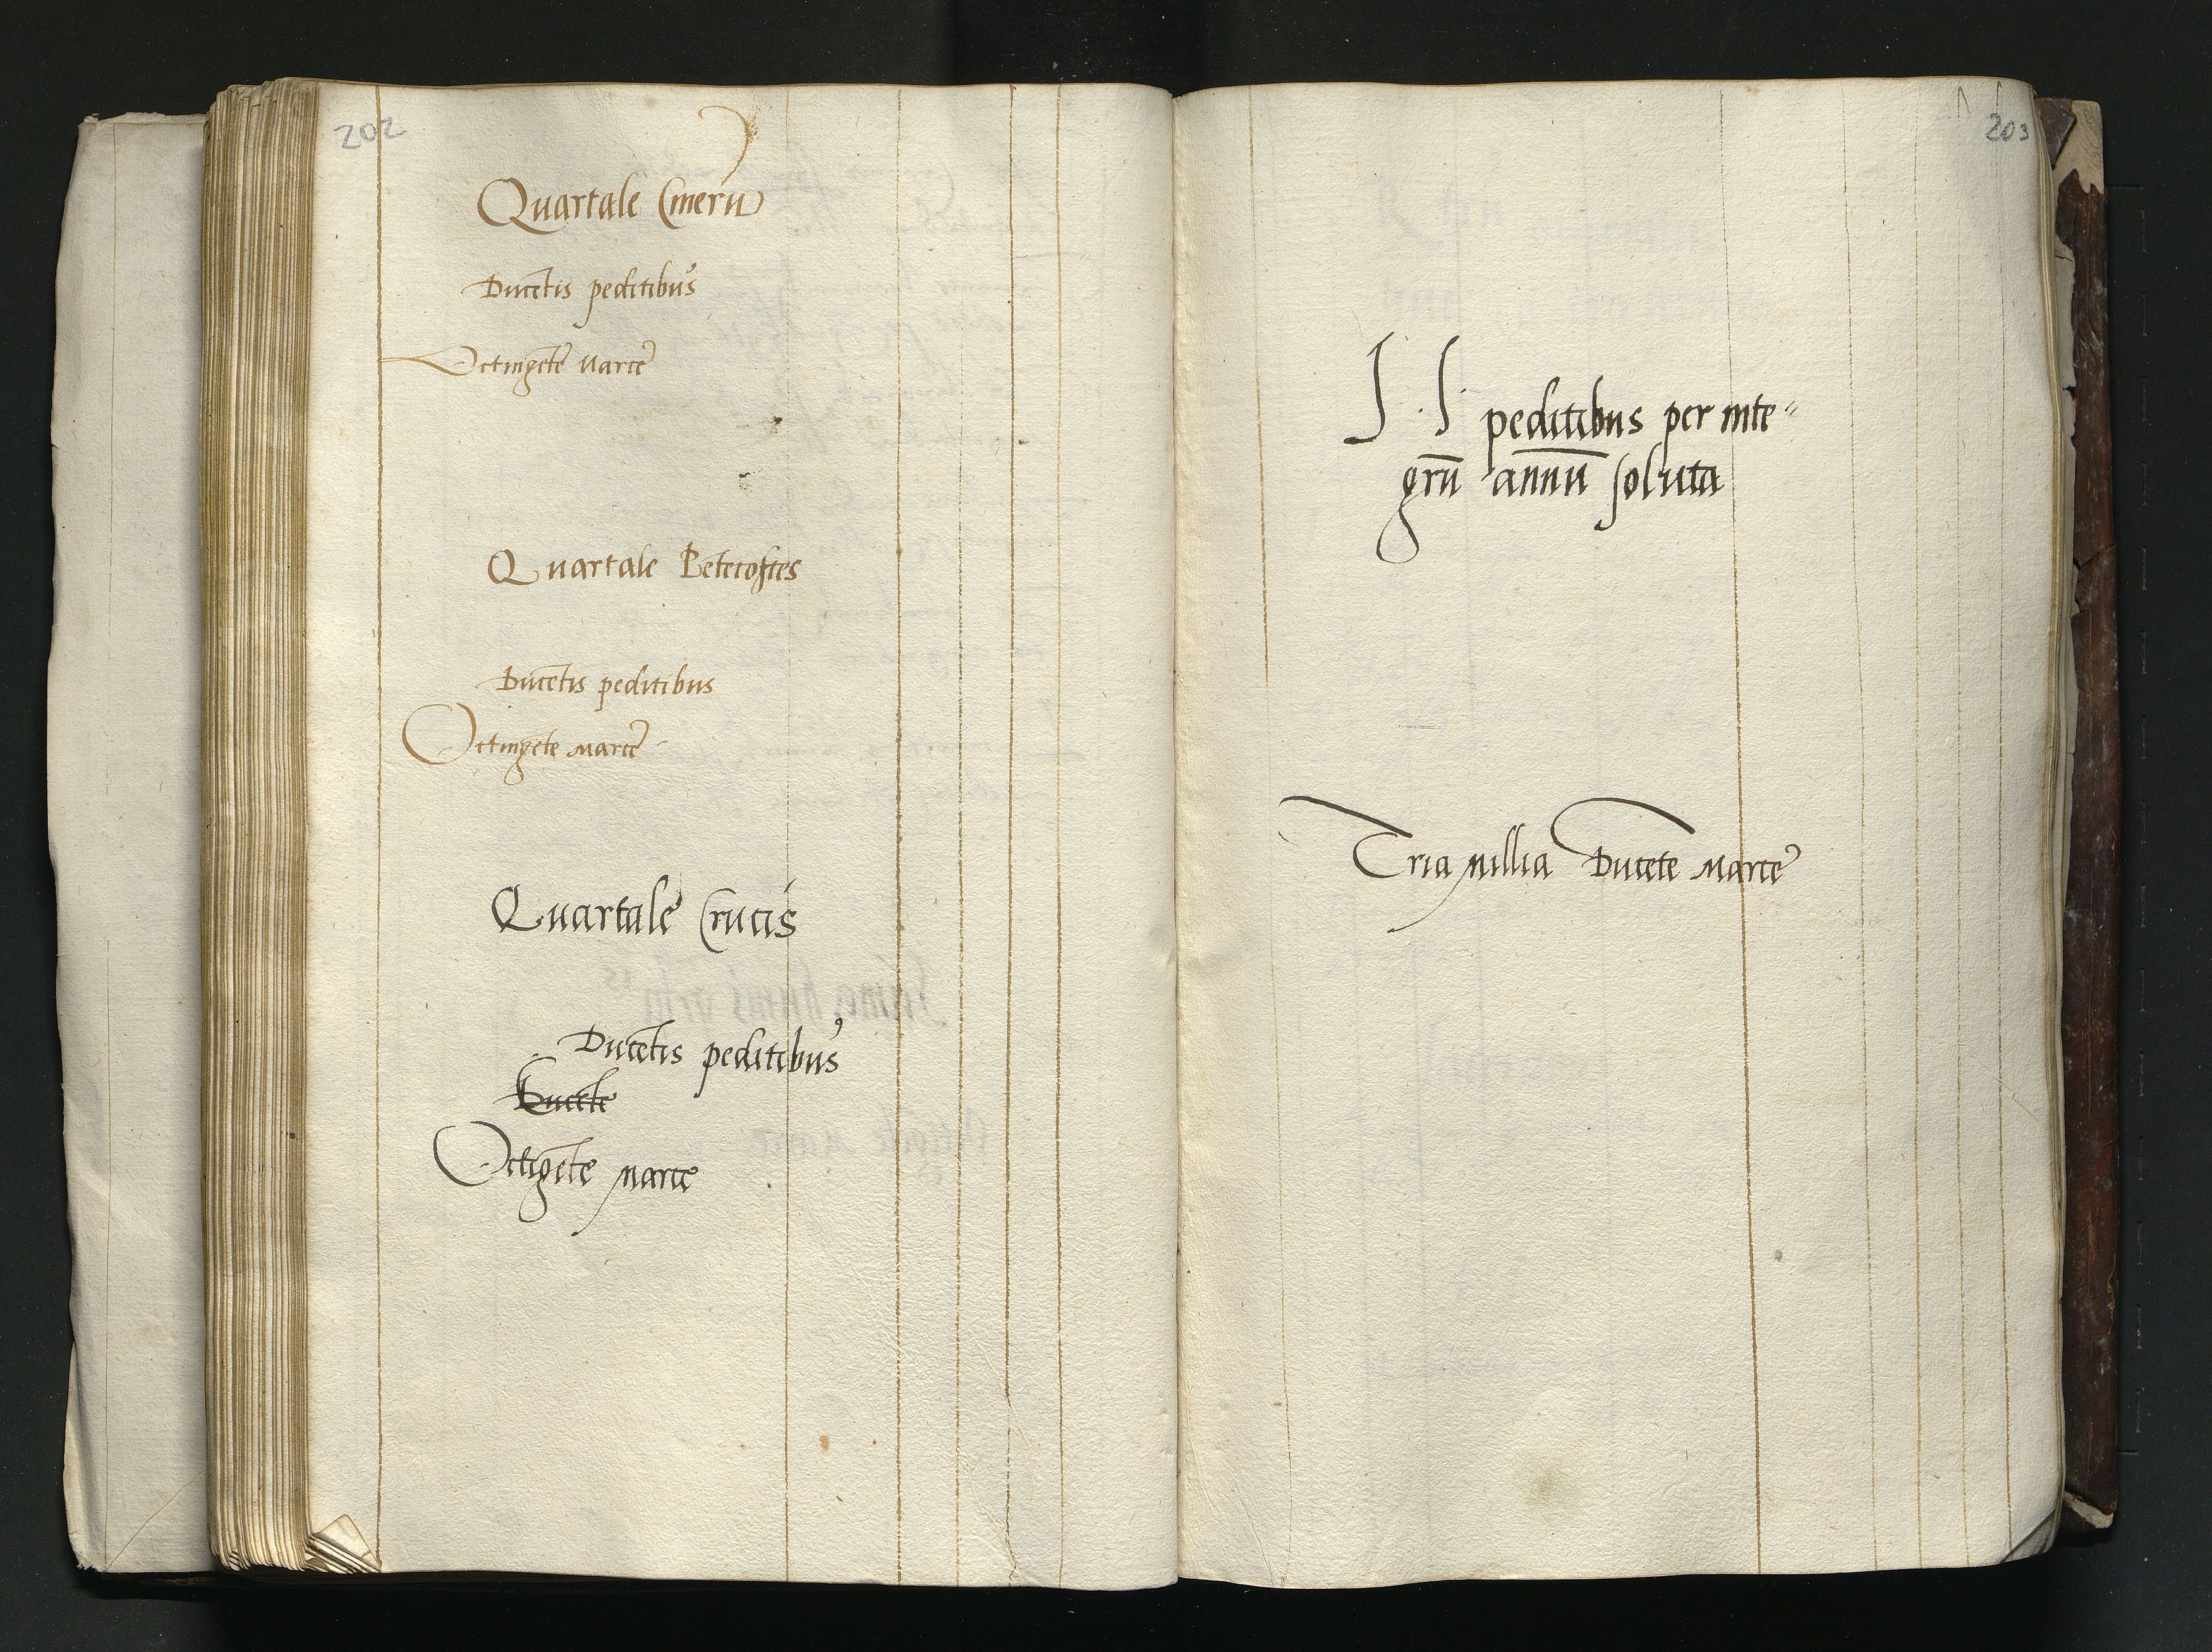 202
Quartale Cinerū
Ducētis peditibus
Octingēte Marce
Quartale Pētecostes
Ducētis peditibus
Octingēte Marce
Quartale Crucis
Ducētis peditibus
Ducēte
Octigēte Marce
203
peditibus per inte〃
grū annū soluta
Tria Millia Ducēte Marce